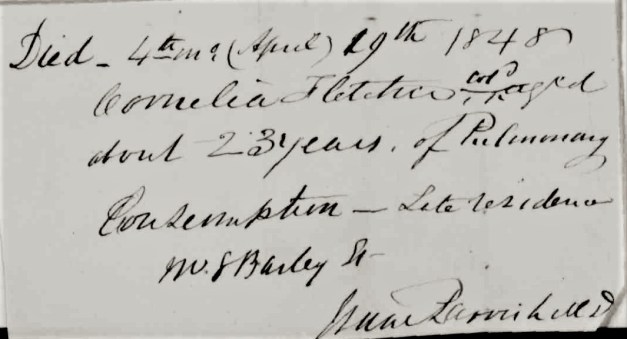 Died - 4th mo. (April) 19th 1848
Cornelia Fletcher col'd aged
about 23 years. of Pulmonary
Consumption - Late residence
No. 8 Barley St
Isaac Parrish M D